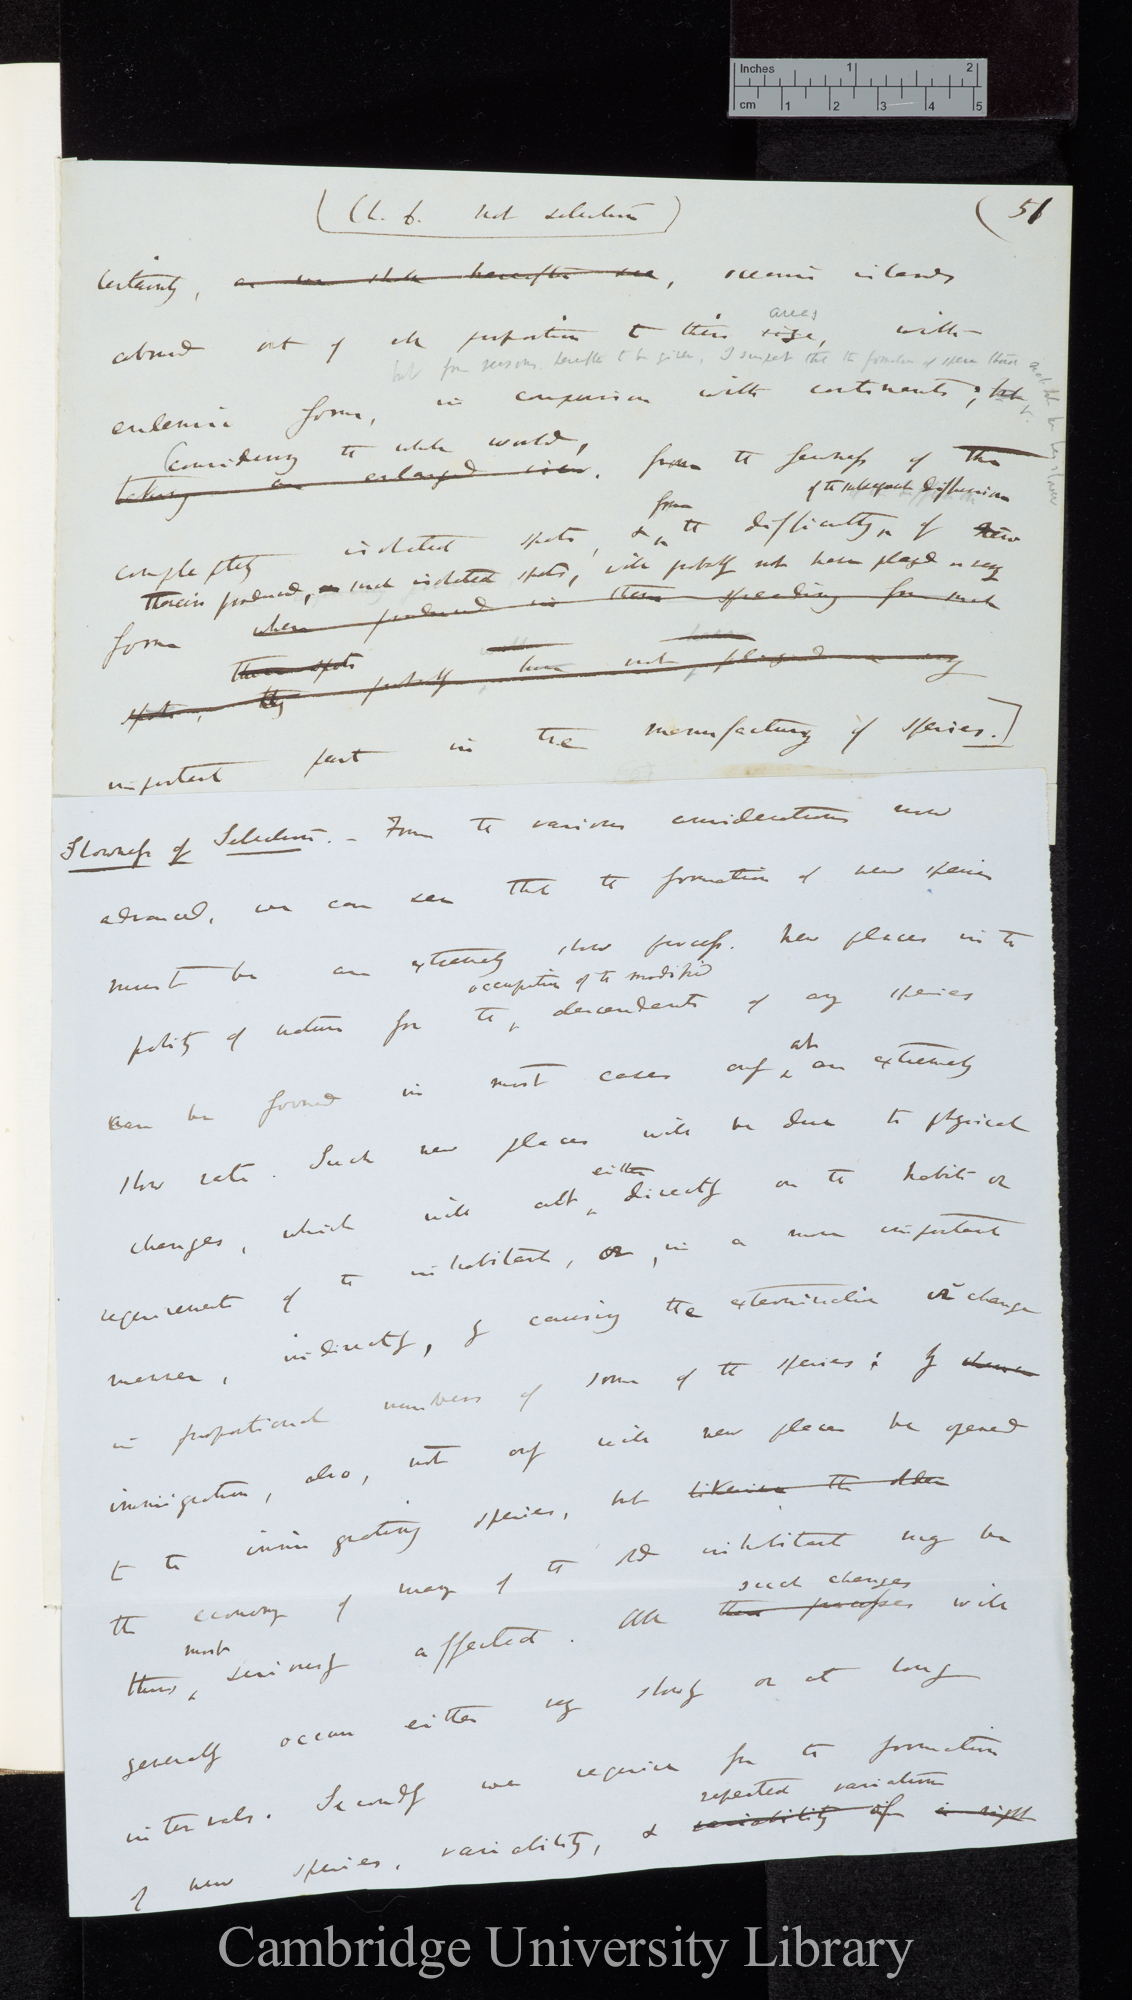 Inches 1 2
cm 1 2 3 4 5
(Ch. 6. Nat selection)
(51
certainty, as we shall hereafter see, oceanic islands
areas
abound out of all proportion to their size, with
but for reasons hereafter to be given, I suspect that the formation of species there
endemic forms, in comparison with continents; but
Considering the whole world,
taking an enlarged view, from the fewness of the
from of the subsequent diffusion
completely isolated spots, & the difficulty of new
therein produced, such isolated spots, will probably not have played a very
forms when produced in them spreading from such
these spots
spots, they probably have not played a very
important part in the manufactury of species.]
Slowness of Selection. — From the various considerations now
advanced, we can see that the formation of new species
must be an extremely slow process. New places in the
occupation of the modified
polity of nature for the descendents of any species
at
can be formed in most cases only an extremely
slow rate. Such new places will be due to physical
either
changes, which will act directly on the habits or
requirements of the inhabitants, or, in a more important
manner, indirectly, by causing the extermination or change
in proportional numbers of some of the species: by
immigration, also, not only will new places be opened
to the immigrating species, but likewise the older
the economy of many of the old inhabitants may be
most such changes
thus seriously affected. All these processes will
generally occur either very slowly or at long
intervals. Secondly we require for the formation
repeated variation
of new species, variability, & variability of a right
Cambridge University Library